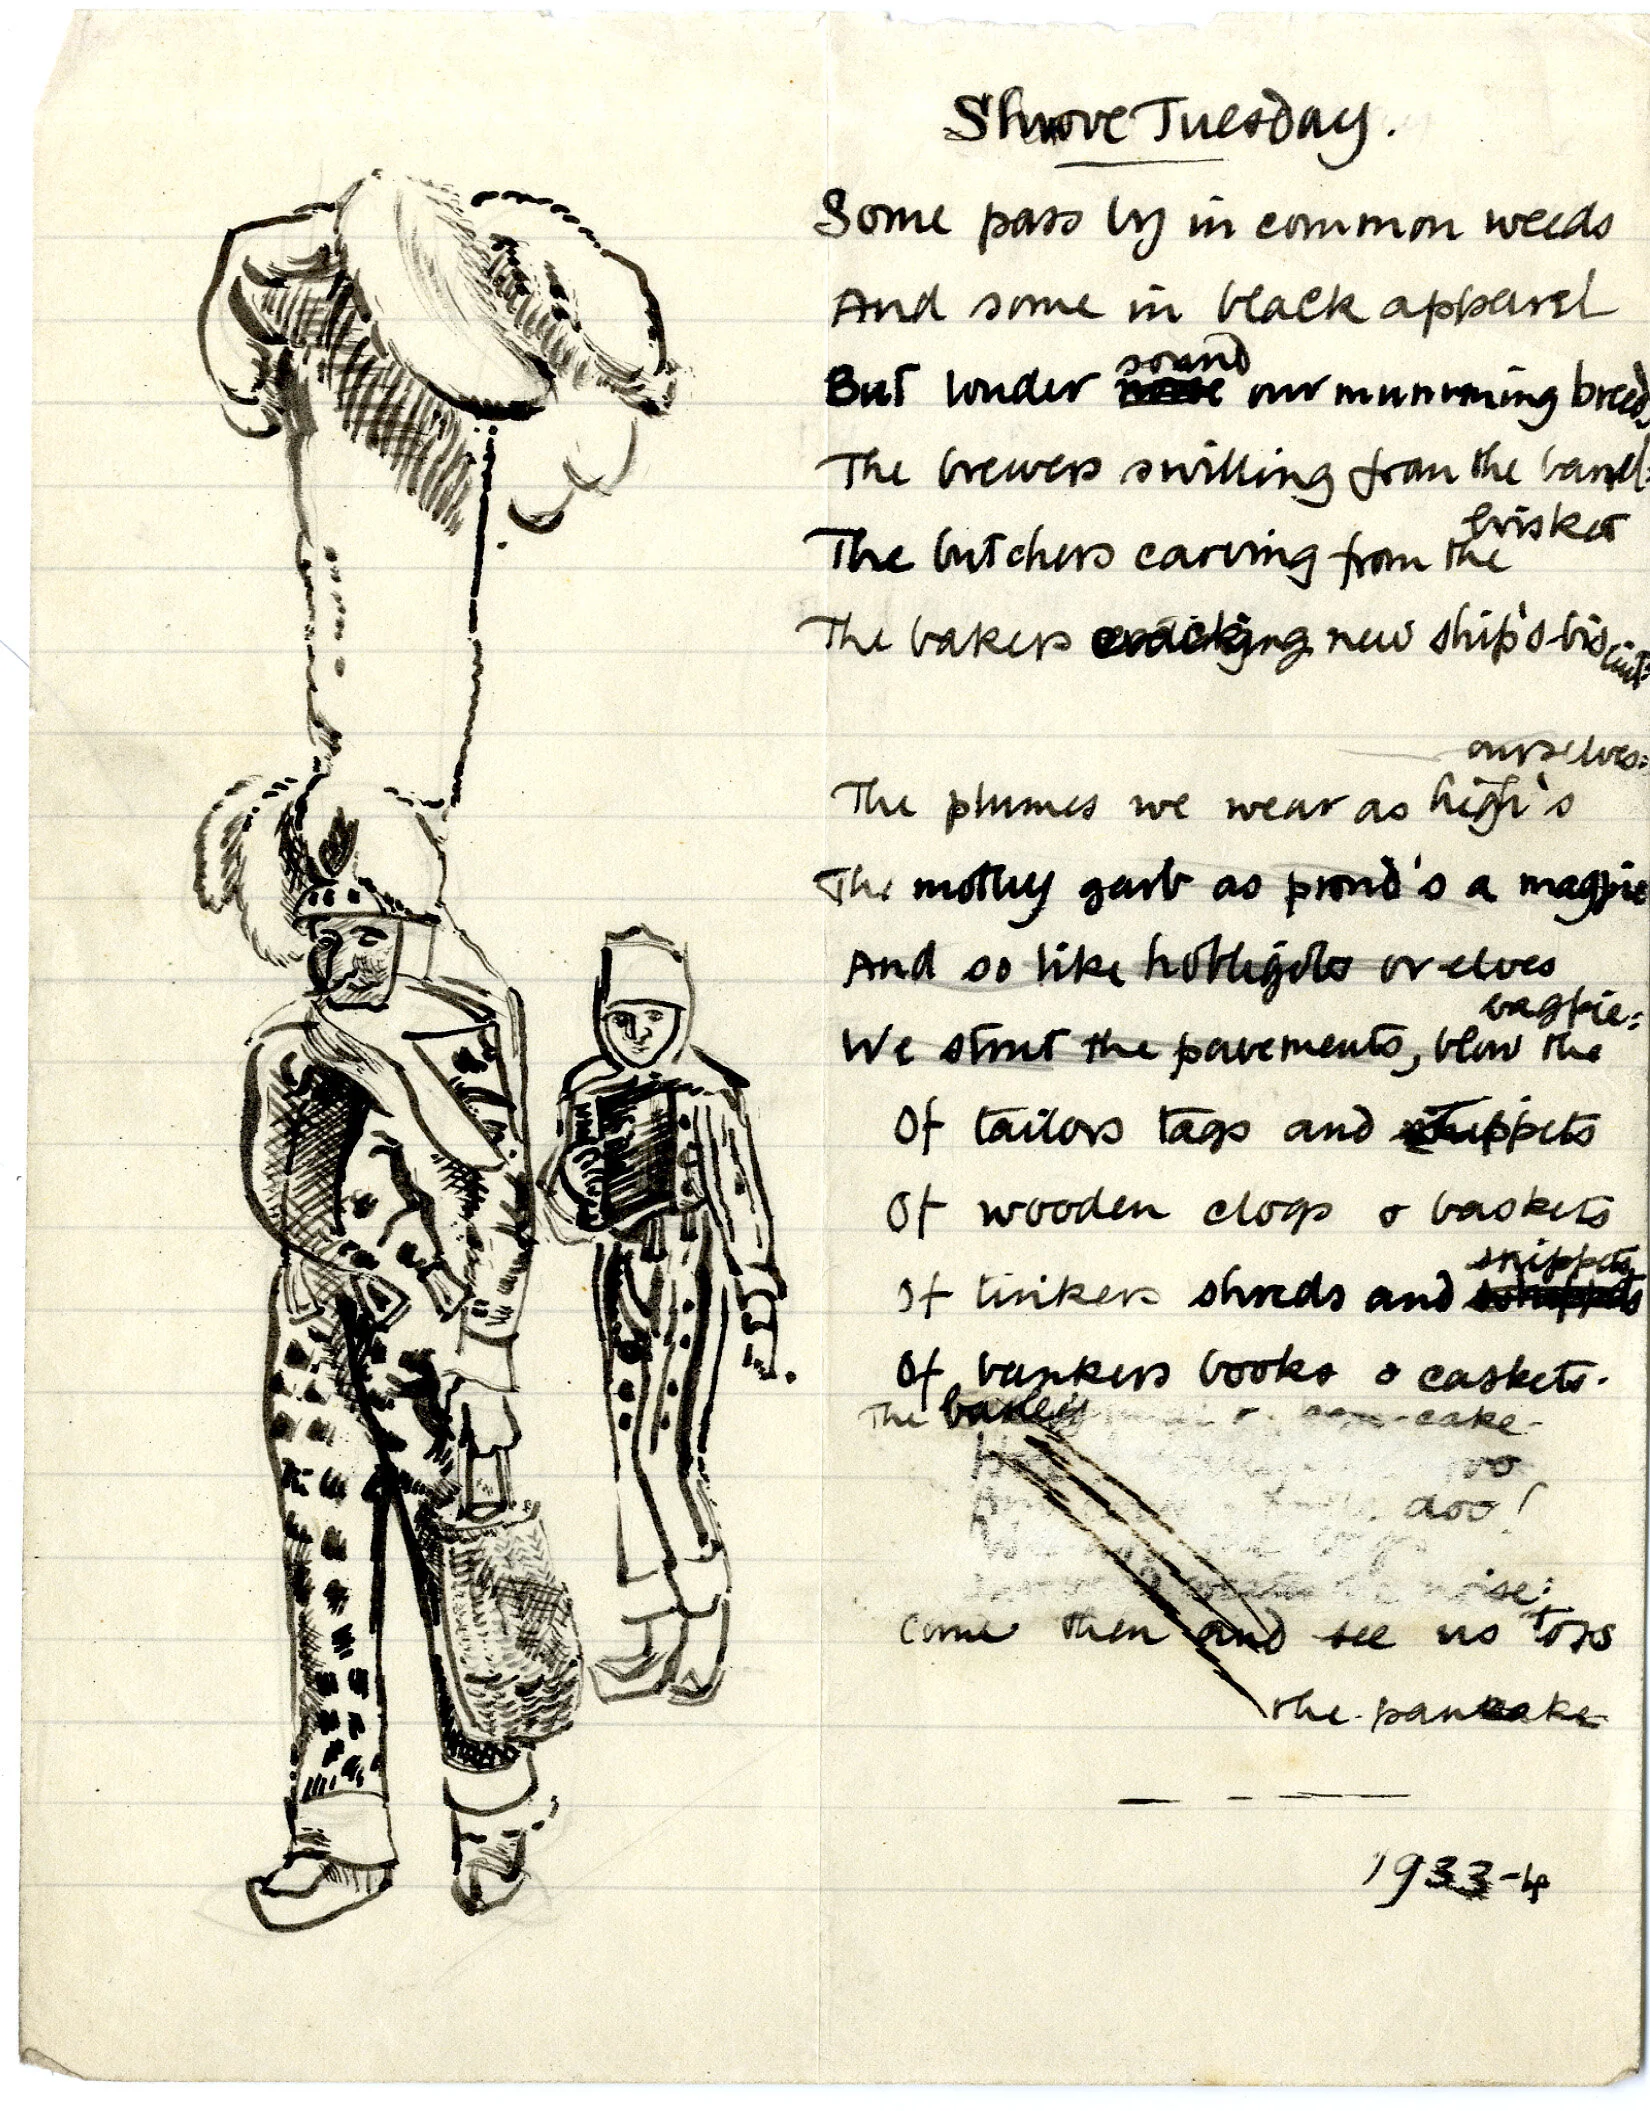 Shrove Tuesday.
Some pass by in common weeds
And some in black apparel
But louder sound our mumming breed,
The brewers swilling from the barrel:
The butchers carving from the brisket
The bakers cracking new ship's-biscuit:
The plumes we wear as high's ourselves:
The motley garb as proud's a magpie
And so like hobligobs or elves
We strut the pavements, blow the bagpie:
Of tailors tags and
Of wooden clogs & baskets
Of tinkers shreds and snippets
Of bankers books & caskets.
The barley cake-
doo!
noise:
Come then and see us toss
the pancake
1933-4